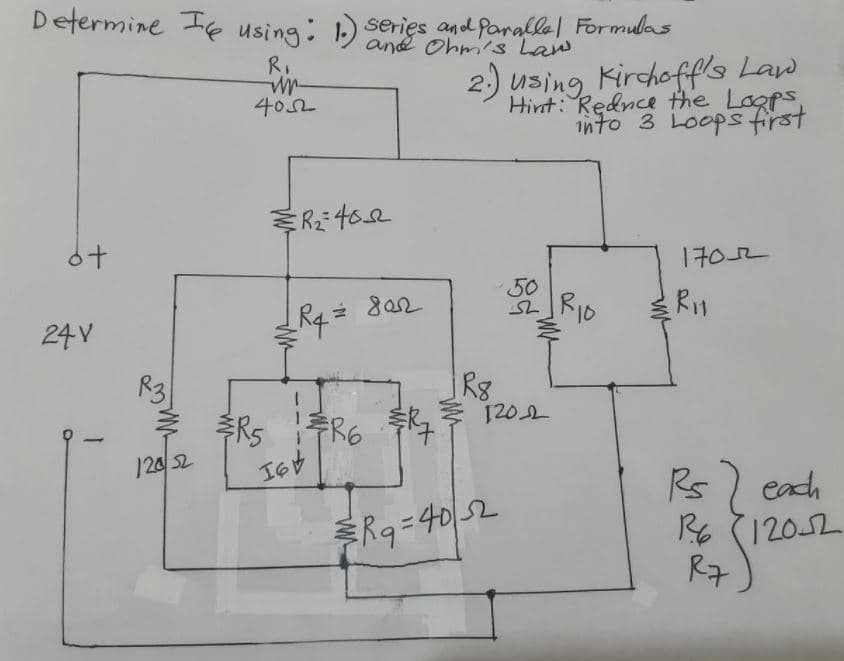 Determine I6 using: 1.) series and Parallel Formulas
and Ohm's Law
2.) using Kirchoff's Law
Hint: Reduce the Loops
into 3 Loops first
R1
40Ω
R2=40Ω
+
24V
-
R3
120Ω
R4= 80Ω
R5
I6
R6
R7
R8
120Ω
R9=40Ω
50
Ω
R10
170Ω
R11
R5
R6
R7
each
120Ω